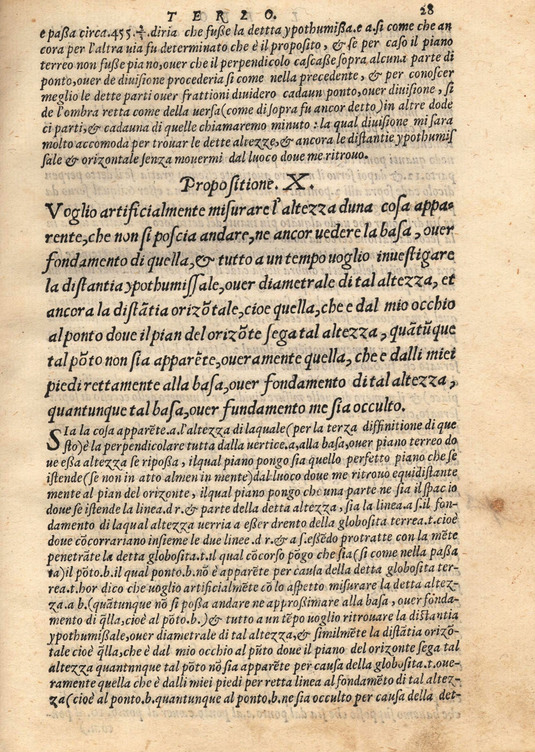 TERZO. 28
e paßa circa.455.5/7. diria che fuße la dettta ypothumißa.e a.si come che an
cora per l'altra uia fu determinato che è il proposito, & se per caso il piano
terreo non fuße piano, ouer che il perpendicolo cascaße sopra alcuna parte di
ponto, ouer de diuisione procederia si come nella precedente, & per conoscer
meglio le dette parti ouer frattioni diuidero cadaun ponto, ouer diuisione, si
de l'ombra retta come della uersa (come di sopra fu ancor detto) in altre dode
ci parti, & cadauna di quelle chiamaremo minuto : la qual diuisione mi sara
molto accomoda per trouar le dette altezze, & ancora le distantie ypothumis
sale & orizontale senza mouermi dal luoco doue me ritrouo.
Propositione. X.
Voglio artificialmente misurare l'altezza duna cosa appa-
rente, che non si poscia andare, ne ancor uedere la basa, ouer
fondamento di quella, & tutto a un tempo uoglio inuestigare
la distantia ypothumissale, ouer diametrale di tal altezza, et
ancora la distãtia orizõtale, cioe quella, che e dal mio occhio
al ponto doue il pian del orizõte sega tal altezza, quãtũque
tal põto non sia apparẽte, oueramente quella, che e dalli miei
piedi rettamente alla basa, ouer fondamento di tal altezza,
quantunque tal basa, ouer fundamento me sia occulto.
SIa la cosa apparẽte.a.l'altezza di laquale (per la terza diffinitione di que
sto) è la perpendicolare tutta dalla uertice.a, alla basa, ouer piano terreo do
ue essa altezza se riposa, il qual piano pongo sia quello perfetto piano che se
istende (se non in atto almen in mente) dal luoco doue me ritrouo equidistante
mente al pian del orizonte, il qual piano pongo che una parte ne sia il spacio
doue se istende la linea.d r. & parte della detta altezza, sia la linea.a s. il fon-
damento di laqual altezza uerria a eßer drento della globosita terrea.t. cioè
doue cõcorrariano insieme le due linee.d r. & a s. eßẽdo protratte con la mẽte
penetrãte la detta globosita.t. il qual cõcorso põgo che sia (si come nella paßa
ta) il põto.b. il qual ponto.b. nõ è apparẽte per causa della detta globosita ter-
rea.t. hor dico che uoglio artificialmẽte cõ lo aspetto misurare la detta altez-
za.a b. (quãtunque nõ si poßa andare ne approßimare alla basa, ouer fonda-
mento di q̃lla, cioè al põto.b.) & tutto a un tẽpo uoglio ritrouare la distantia
ypothumißale, ouer diametrale di tal altezza, & similmẽte la distãtia orizõ-
tale cioè q̃lla, che è dal mio occhio al pũto doue il piano del orizonte sega tal
altezza quantunque tal põto nõ sia apparẽte per causa della globosita.t. oue-
ramente quella che è dalli miei piedi per retta linea al fondamẽto di tal altez-
za (cioè al ponto.b. quantunque al ponto.b. ne sia occulto per causa della det-